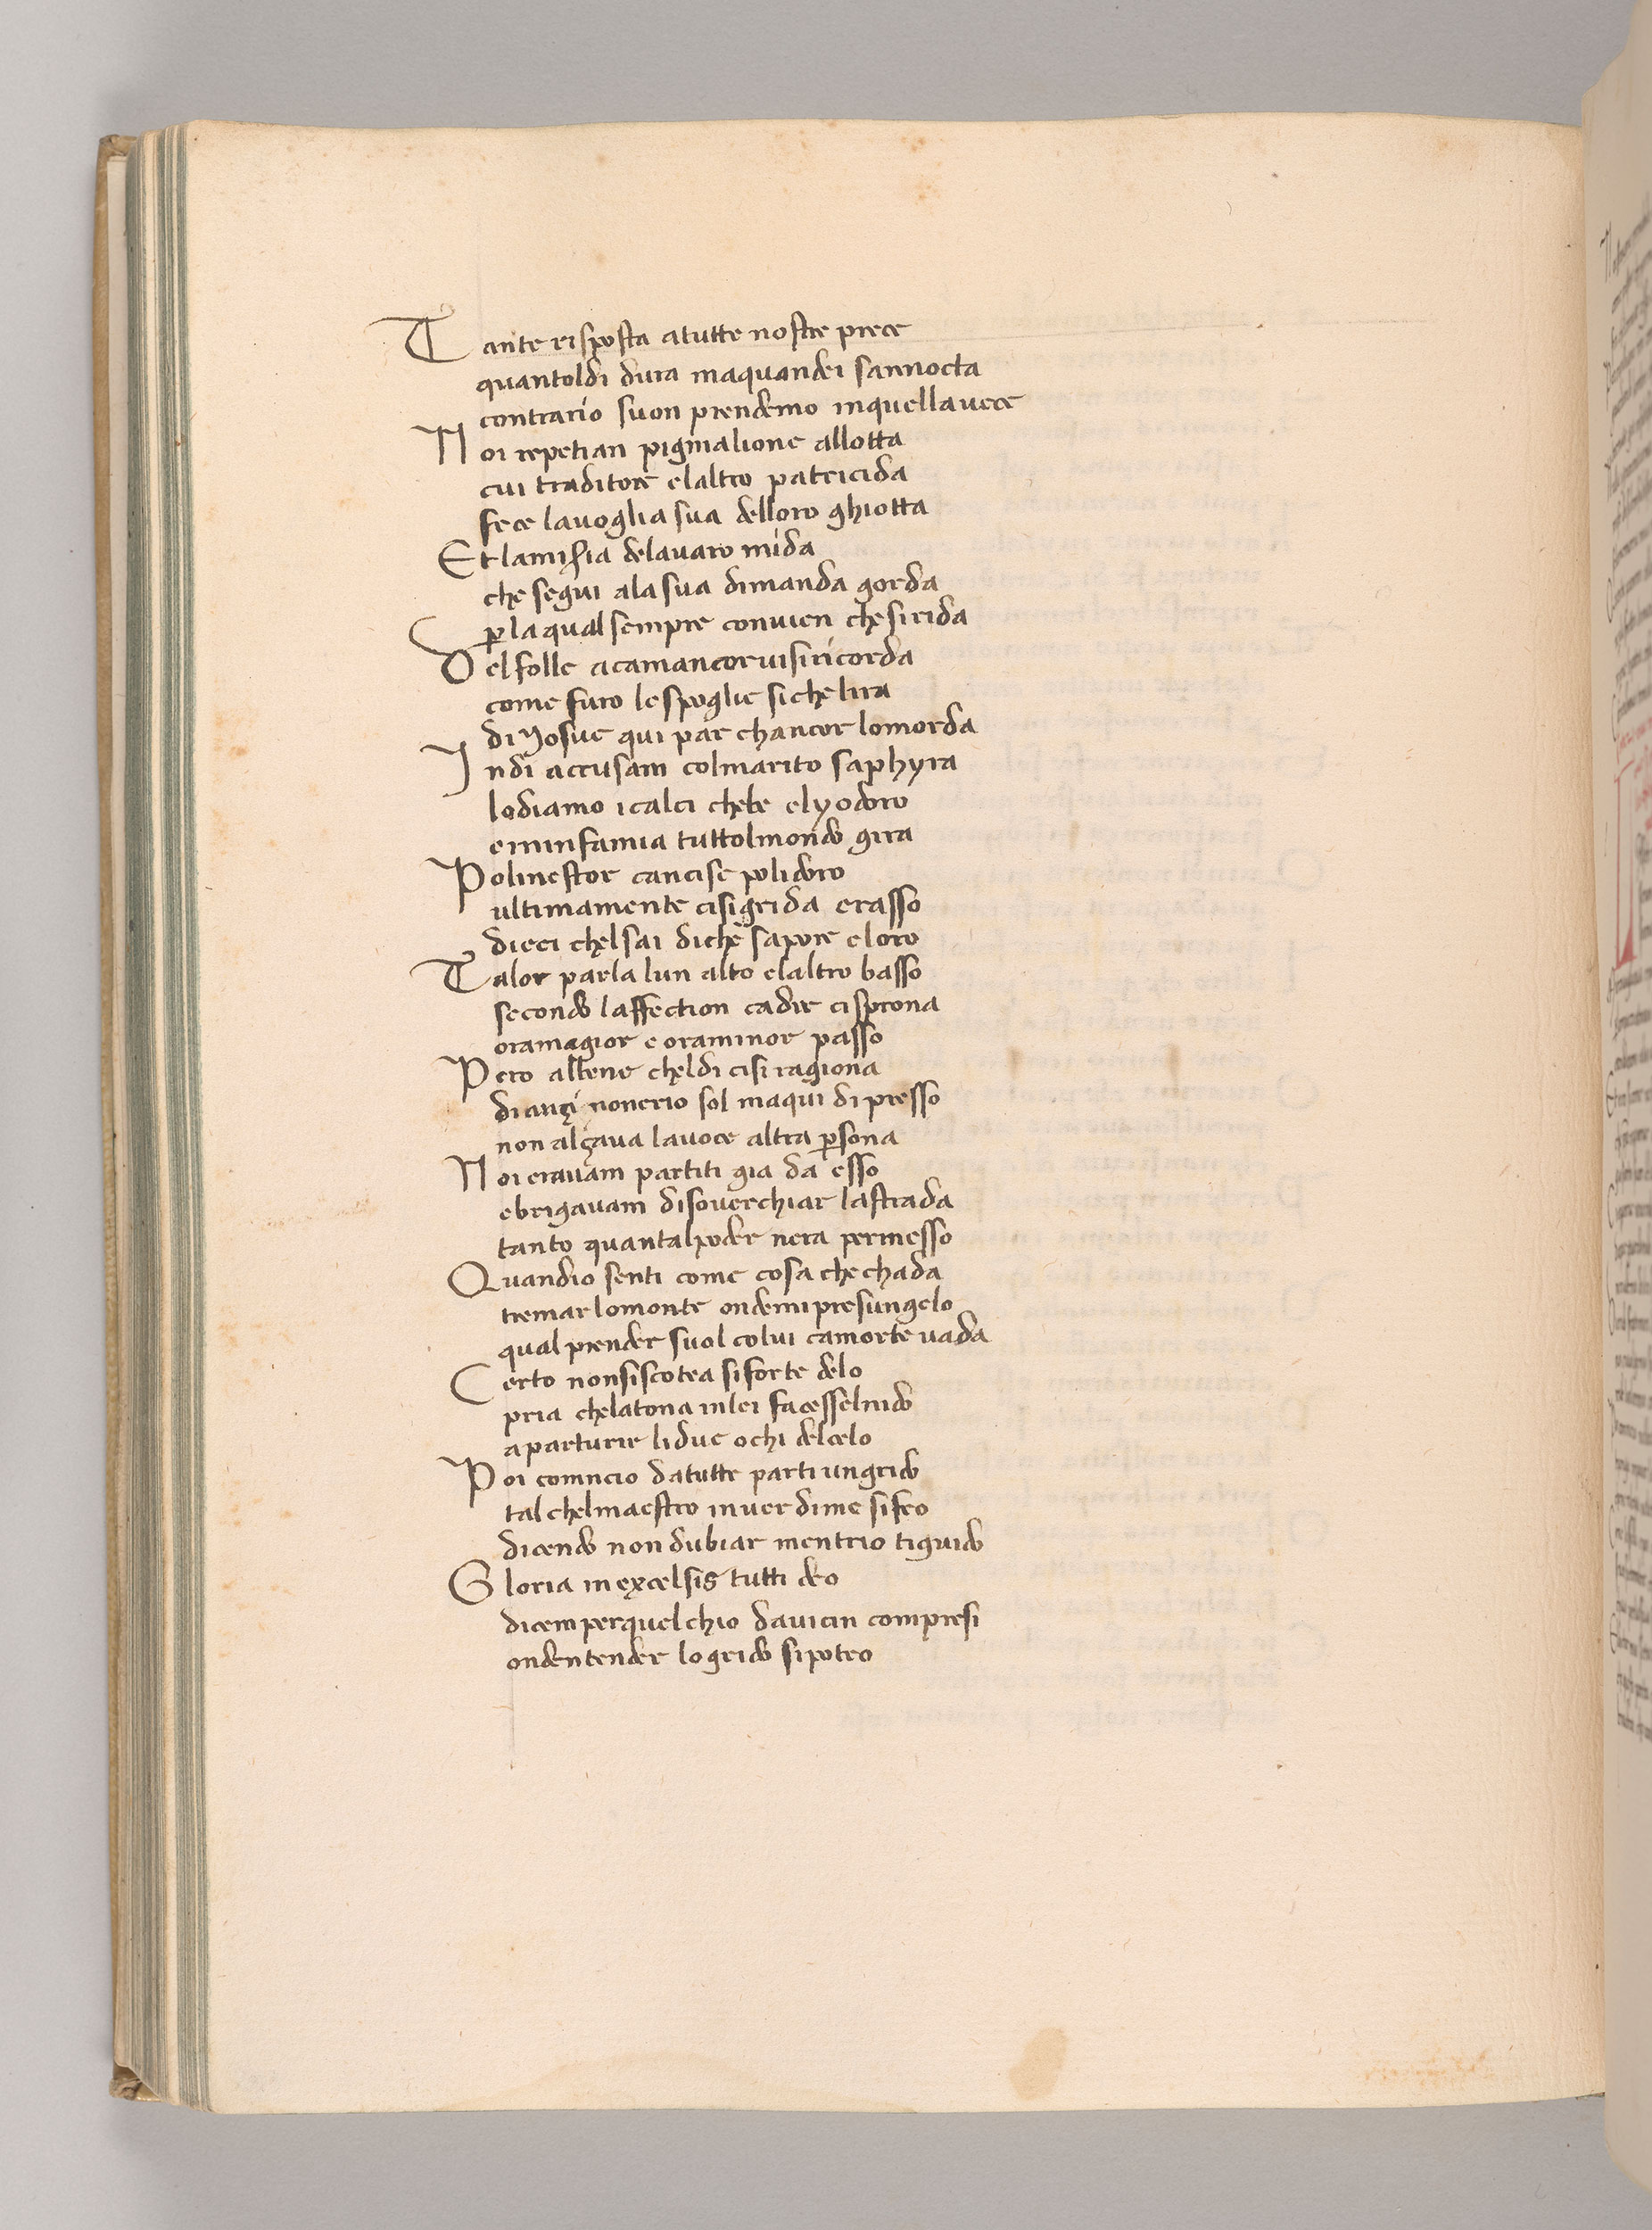 Tante risposta atutte nostre prece
quantoldi dura maquandei sannocta
contrario suon prendemo inquellavece
Noi repetian pigmalione allotta
cui traditore elaltro patricida
fece lavoglia sua delloro ghiotta
Et lamisia delavaro mida
che segui ala sua dimanda gorda
p la qual sempre convien chesirida
Del folle acamancorvisiricorda
come furo lespoglie sichelira
di Josue qui par chancor lomorda
Indi accusam colmarito saphyra
lodiamo i calci chebe elyodoro
eininfamia tuttolmondo gira
Polinestor cancise polidoro
ultimamente cisigrida crasso
dicci chelsai dichè sapore eloro
Talor parla lun alto elaltro basso
secondo laffection cadir cisprona
oramagior e oraminor passo
Pero albene cheldi cisiragiona
dianzi nonerio sol maqui di presso
non alçava lavoce altra psona
Noi eravam partiti gia da esso
ebrigavam disoverchiar lastrada
tanto quantalpoder nera permesso
Quandio senti come cosa chechada
tremarlomonte ondemipresungelo
qual prender suol colui camorte vada
Certo nonsiscotea siforte delo
pria chelatona inlei facesselnido
aparturir lidue ochi delcelo
Poi comincio datutte parti ungrido
tal chelmaestro inver dime sifeo
dicendo non dubiar mentrio tiguido
Gloria in excelsis tutti deo
dicemperquel chio davicin compresi
ondentender logrido sipoteo